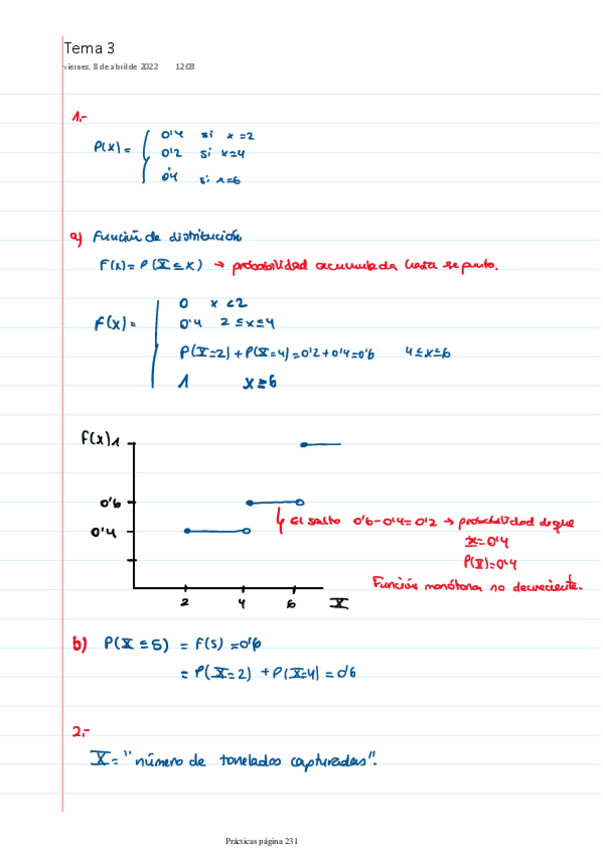 Tema 3
viernes, 8 de abril de 2022 12:03
1.-
P(x) = { 0'4 si x = 2
0'2 si x=4
0'4 si x=6
a) Función de distribución
F(x) = P(X ≤ x) → probabilidad acumulada hasta ese punto.
F(x) = 0 x < 2
0'4 2 ≤ x ≤ 4
P(X=2) + P(X=4) = 0'2 + 0'4 = 0'6 4 ≤ x ≤ 6
1 x ≥ 6
F(x) 1
0'6
↳ El salto 0'6 - 0'4 = 0'2 → probabilidad de que
0'4
x = 0'4
P(X) = 0'4
Función monótona no decreciente.
2 4 6 X
b) P(X ≤ 5) = F(5) = 0'6
= P(X=2) + P(X=4) = 0'6
2.-
X = "número de toneladas capturadas".
Prácticas página 231